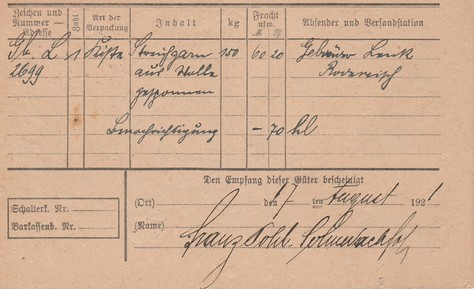 Zeichen und Nummer — Adresse Zahl Art der Verpackung Inhalt kg Fracht usw. M. Pf. Absender und Versandstation
G. L. 1 Kiste Streichgarn 150 60 20 Gebrüder Lenk
2699 aus Wolle Rodewisch
gesponnen
Benachrichtigung — 70
Den Empfang dieser Güter bescheinigt
(Ort) den 17 ten August 1921
Schalterk. Nr.
Barkassenb. Nr.
(Name) Franz Pohl